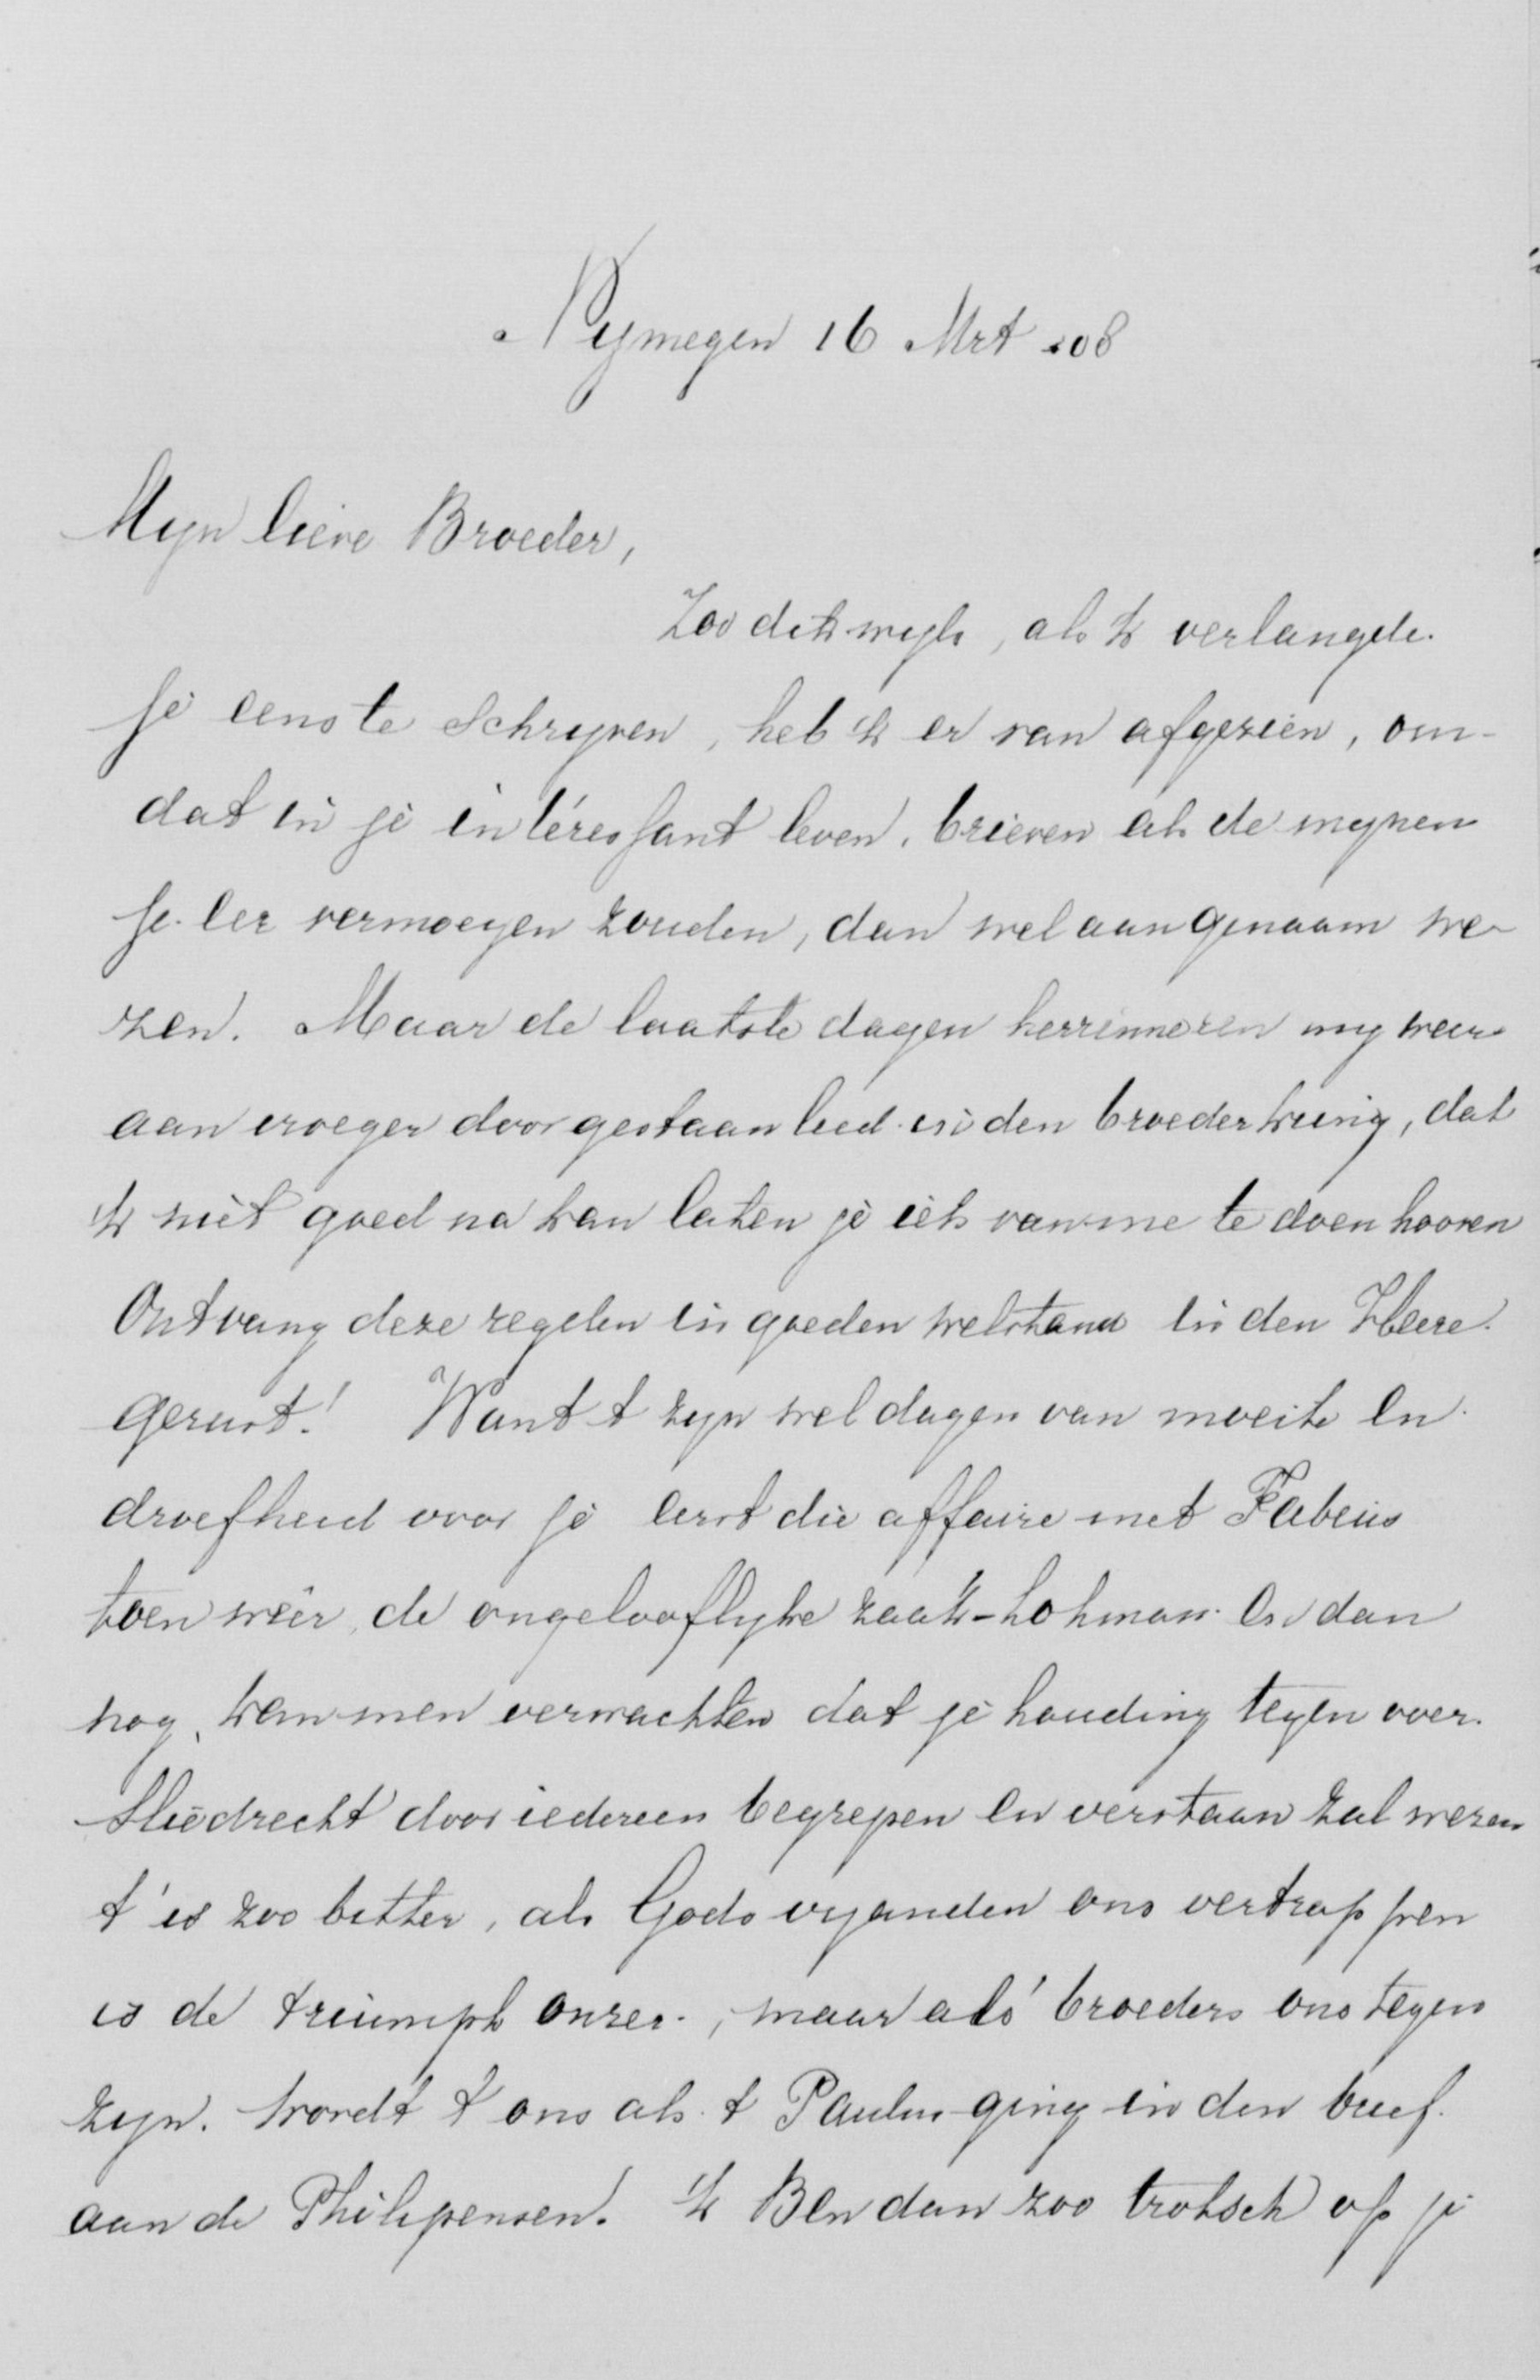 Nijmegen 16 Mrt 08
Mijn lieve Broeder,
Zoo dikwijls, als 'k verlangde
je eens te schrijven, heb 'k er van afgezien, om-
dat in je interessant leven, brieven als de mijnen
je eer vermoeyen zouden, dan wel aangenaam we-
zen. Maar de laatste dagen herrinneren mij weer
aan vroeger doorgestaan leed in den broederkring, dat
'k niet goed na kan laten je iets van me te doen hooren
Ontvang deze regelen in goeden welstand in den Heere
gerust! Want t zijn wel dagen van moeite en
droefheid voor je eerst die affaire met Fabius
toen wéér de ongelooflijke zaak-Lohman. En dan
nog, kan men verwachten dat je houding tegenover
Sliedrecht door iedereen begrepen en verstaan zal wezen
t' is zoo bitter, als Gods vijanden ons vertrappen
is de triumph onzer, maar als broeders ons tegen
zijn. wordt t ons als t Paulus ging in den brief
aan de Philipensen. 'k Ben dan zoo trotsch op je